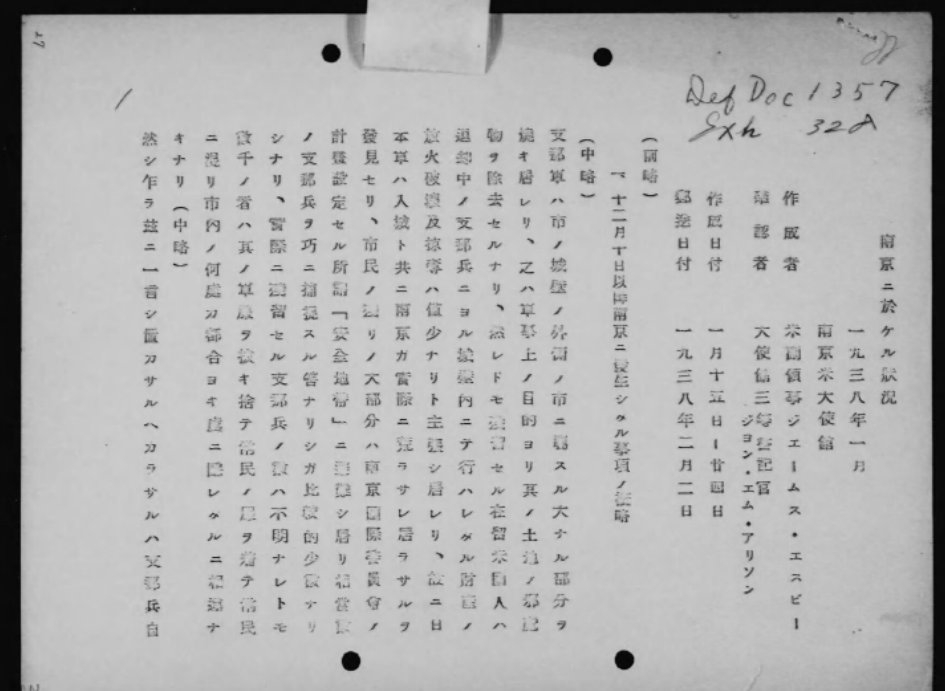 Def Doc 1357
Exh 328
南京ニ於ケル狀況
一九三八年一月
南京米大使館
作成者 米副領事ジエームス・エスピー
承認者 大使館三等書記官
ジヨン・エム・アリソン
作成日付 一月十五日ー廿四日
郵送日付 一九三八年二月二日
(前略)
一、十二月十日以降南京ニ發生シタル事項ノ概略
(中略)
支那軍ハ市ノ城壁ノ外側ノ市ニ屬スル大ナル部分ヲ
燒キ居レリ、之ハ軍事上ノ目的ヨリ其ノ土地ノ邪魔
物ヲ除去セルナリ、然レドモ殘留セル在留米國人ハ
退却中ノ支那兵ニヨル城壁內ニテ行ハレタル財產ノ
放火破壞及掠奪ハ僅少ナリト主張シ居レリ、故ニ日
本軍ハ入城ト共ニ南京ガ實際ニ荒ラサレ居ラサルヲ
發見セリ、市民ノ殘リノ大部分ハ南京國際委員會ノ
計畫設定セル所謂「安全地帶」ニ避難シ居リ相當數
ノ支那兵ヲ巧ニ捕捉スル筈ナリシガ比較的少數ナリ
シナリ、實際ニ殘留セル支那兵ノ數ハ不明ナレトモ
數千ノ者ハ其ノ軍服ヲ拔キ捨テ常民ノ服ヲ着テ常民
ニ混リ市內ノ何處カ都合ヨキ處ニ隱レタルニ相違ナ
キナリ(中略)
然シ乍ラ茲ニ一言シ置カサルヘカラサルハ支那兵自
1
27